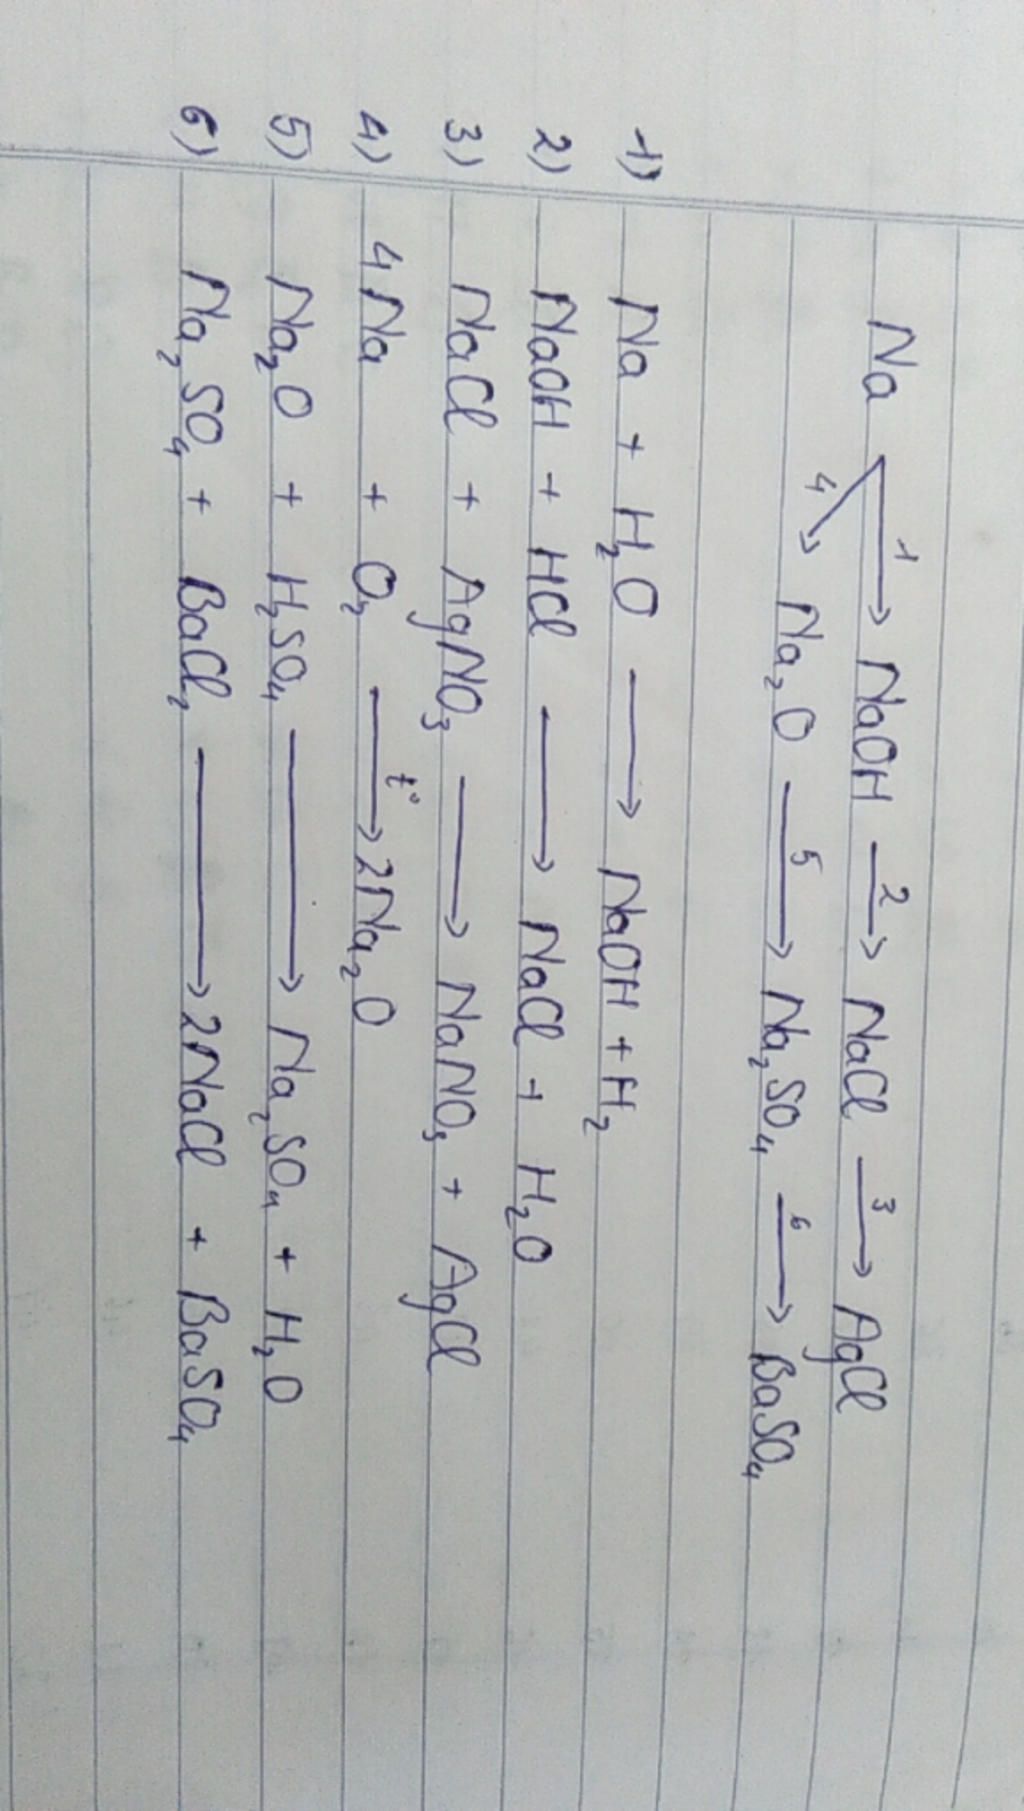 Na 1→ NaOH 2→ NaCl 3→ AgCl
4↘ Na₂O 5→ Na₂SO₄ 6→ BaSO₄
1) Na + H₂O → NaOH + H₂
2) NaOH + HCl → NaCl + H₂O
3) NaCl + AgNO₃ → NaNO₃ + AgCl
4) 4Na + O₂ t°→ 2Na₂O
5) Na₂O + H₂SO₄ → Na₂SO₄ + H₂O
6) Na₂SO₄ + BaCl₂ → 2NaCl + BaSO₄